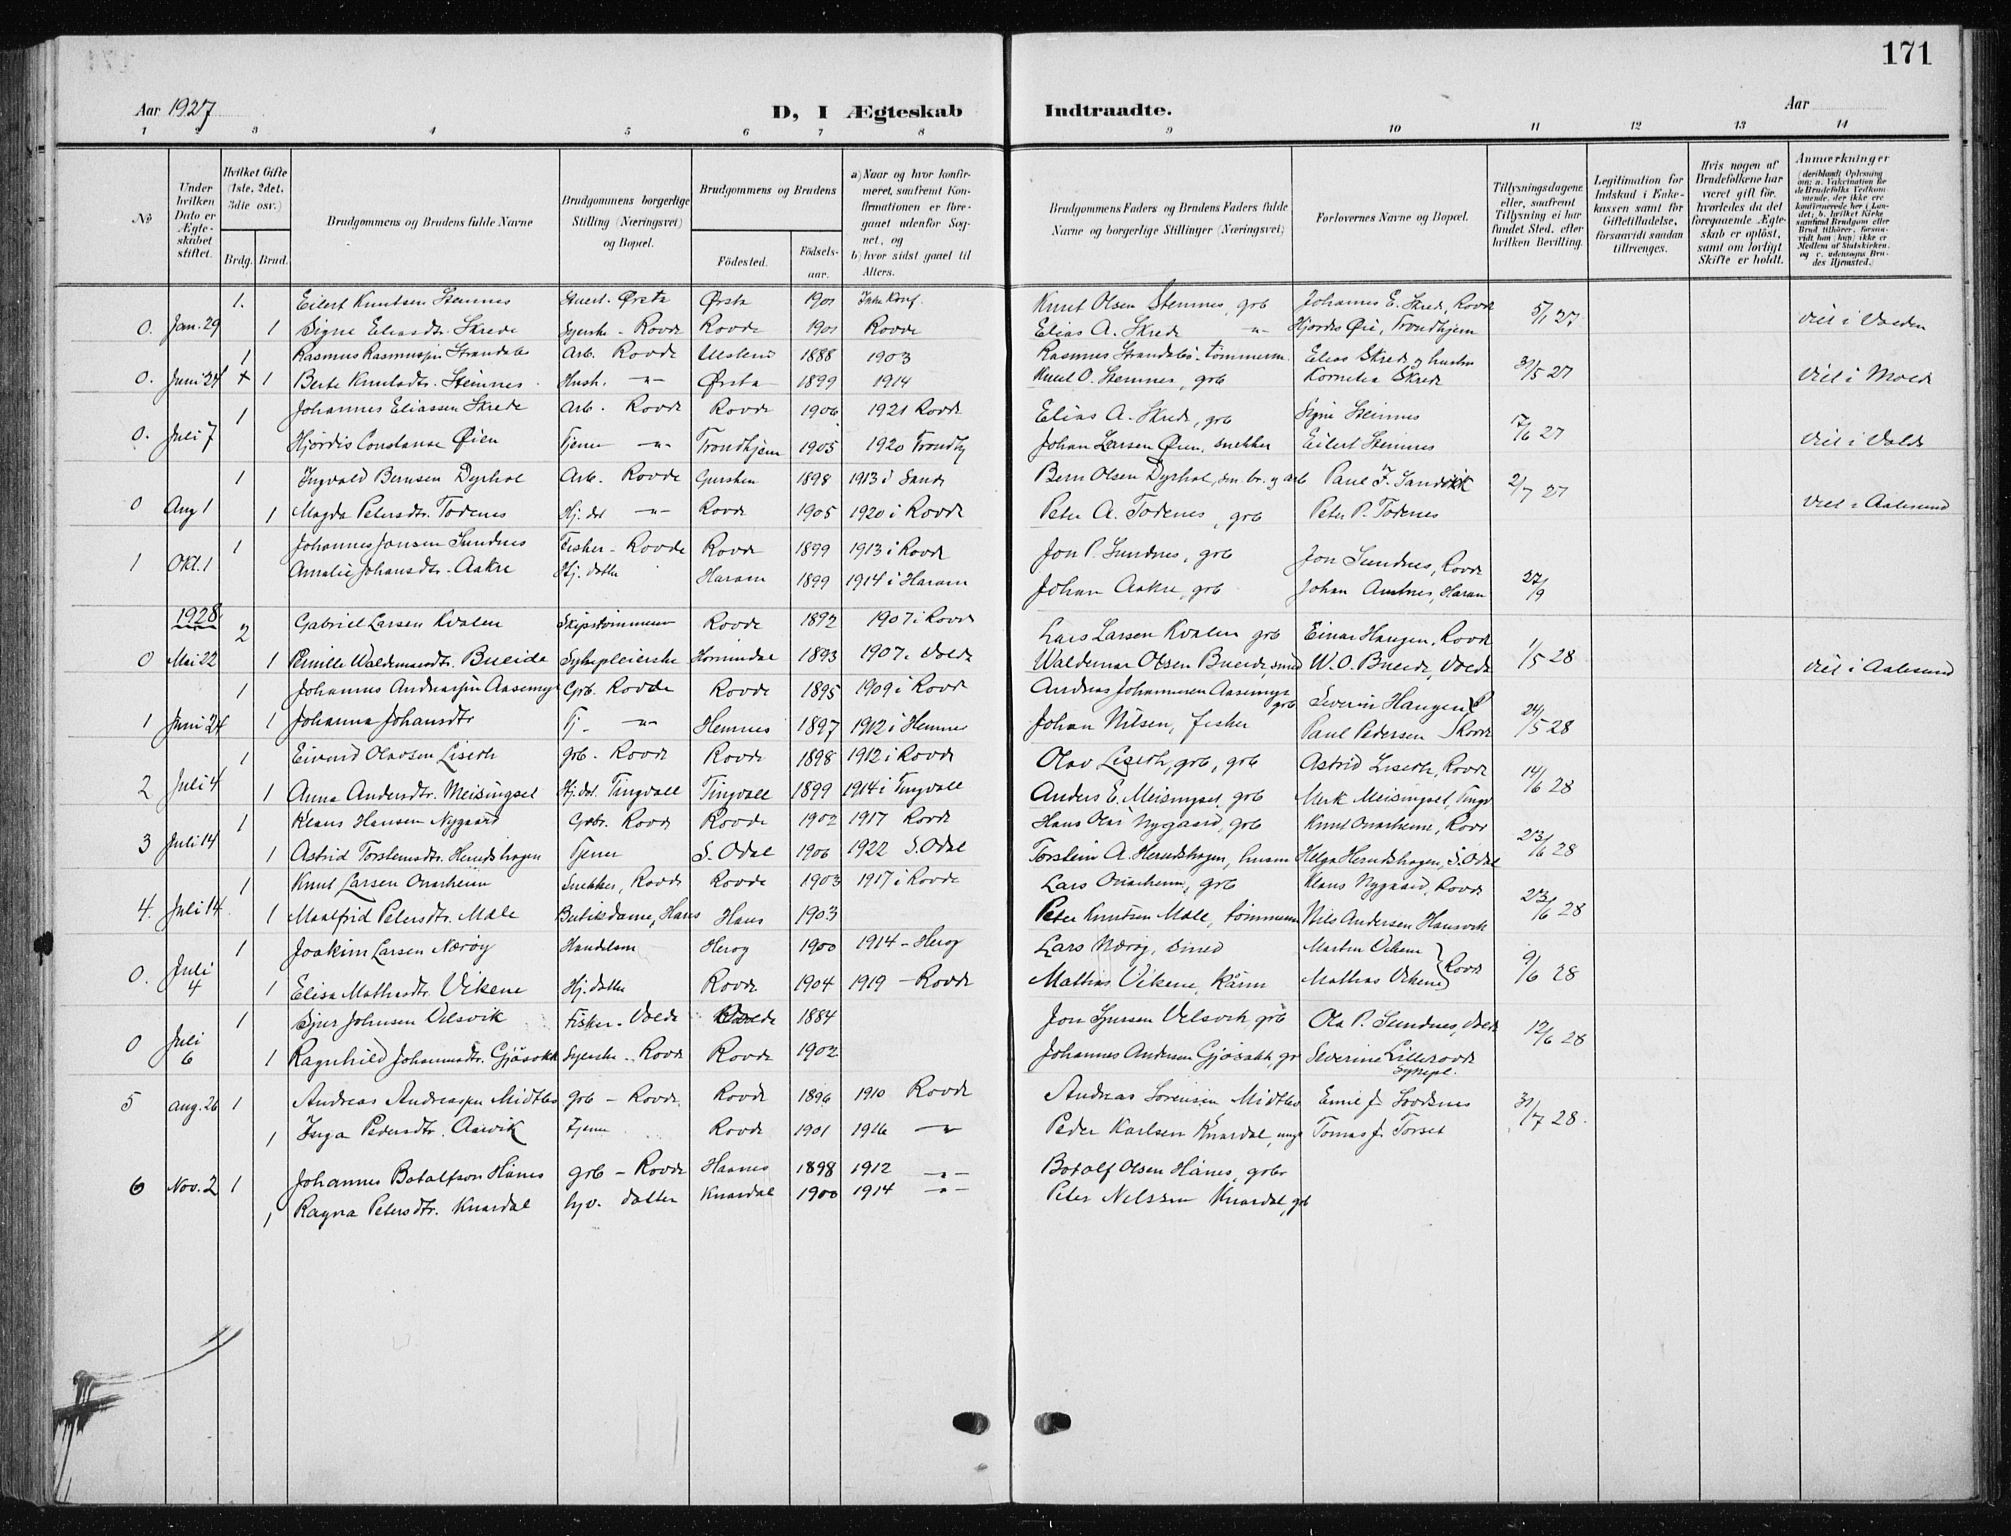 171
Aar 1927
D, I Ægteskab Indtraadte.
Aar
1 2 3 4 5 6 7 8 9 10 11 12 13 14
No
Under hvilken Dato er Ægteskabet stiftet.
Hvilket Gifte (1ste, 2det, 3die osv.)
Brdg. Brud.
Brudgommens og Brudens fulde Navne
Brudgommens borgerlige Stilling (Næringsvei) og Bopæl.
Brudgommens og Brudens
Fødested. Fødselsaar.
a) Naar og hvor konfirmeret, saafremt Konfirmationen er foregaaet udenfor Sognet, og
b) hvor sidst gaaet til Alters.
Brudgommens Faders og Brudens Faders fulde Navne og borgerlige Stillinger (Næringsvei)
Forlovernes Navne og Bopæl.
Tillysningsdagene eller, saafremt Tillysning ei har fundet Sted, efter hvilken Bevilling.
Legitimation for Indskud i Enkekassen samt for Giftetilladelse, forsaavidt saadan tiltrænges.
Hvis nogen af Brudefolkene har været gift før, hvorledes da det foregaaende Ægteskab er opløst, samt om lovligt Skifte er holdt.
Anmærkninger (deriblandt Oplysning om: a. Vaksination for de Brudefolks Vedkommende, der ikke ere konfirmerede her i Landet; b. hvilket Kirkesamfund Brudgom eller Brud tilhører, forsaavidt han (hun) ikke er Medlem af Statskirken, og c. udensogns Brudes Hjemsted.)
1. Eilert Knutsen Steinnes Ørsta Ørsta 1901 Ikke Konf. Knut Olsen Steinnes, grb Johannes E. Skrede, Rovde
0. Jan. 29 1 Signe Eliasdtr. Skrede Syerske - Rovde Rovde 1901 Rovde Elias A. Skrede -"- Hjordis Øie, Trondhjem 5/1 27 viet i Volden
1 Rasmus Rasmussen Strandabø Arb. Rovde Ulstein 1888 1903 Rasmus Strandabø, tømmerm. Elias Skrede og hustru
0. Juni 24 + 1 Berte Knutsdtr. Steinnes Hush. -"- Ørsta 1899 1914 Knut O. Steinnes, grb Kornelia Skrede 31/5 27 viet i Molde
1 Johannes Eliassen Skrede Arb. Rovde Rovde 1906 1921 Rovde Elias A. Skrede, grb Signe Steinnes
0. Juli 7 Hjördis Constanse Øien Tjener -"- Trondhjem 1905 1920 Trondhj Johan Larsen Øien, snekker Eilert Steinnes 17/6 27 viet i Volda
1 Ingvald Bernsen Dyrhol Arb. Rovde Gursken 1898 1913 i Sande Bern Olsen Dyrhol, sm. br. og arb Paul F. Sandvik
0 Aug 1 1 Magda Petersdtr. Todenes Hj. dt -"- Rovde 1905 1920 i Rovde Peter A. Todenes, grb Peter P. Todenes 2/7 27 viet i Aalesund
1 Johannes Jonsen Sundnes Fisker - Rovde Rovde 1899 1913 i Rovde Jon P. Sundnes, grb Jon Sundnes, Rovde
1 Okt. 1 Amalie Johansdtr. Aakre Hj. datter Haram 1899 1914 i Haram Johan Aakre, grb Johan Austnes, Haram 27/9
1928
2 Gabriel Larsen Kvalen Skipstømmerm Rovde 1892 1907 i Rovde Lars Larsen Kvalen grb Einar Haugen, Rovde
0 Mai 22 1 Pernille Waldemarsdtr. Bueide Sykepleierske Hornindal 1893 1907 i Volda Waldemar Olsen Bueide, smed W. O. Bueide, Volda 1/5 28 viet i Aalesund
1 Johannes Andreassen Aasemyr Grb. Rovde Rovde 1895 1909 i Rovde Andreas Johannesen Aasemyr grb Severin Haugen
1 Juni 24 1 Johanna Johansdtr Tj. -"- Hemnes 1897 1912 i Hemnes Johan Nilsen, fisker Paul Pedersen Rovde 24/5 28
1 Eivind Olavsen Liseth grb. Rovde Rovde 1898 1912 i Rovde Olav Liseth, grb, grb Astrid Liseth, Rovde
2 Juli 4 1 Anna Andersdtr. Meisingset Hj. dt. Tingvoll Tingvoll 1899 1914 i Tingvoll Anders E. Meisingset, grb Merk Meisingset, Tingv 14/6 28
1 Klaus Hansen Nygaard Grbr. Rovde Rovde 1902 1917 Rovde Hans Olai Nygaard, grb Knut Onarheim, Rovde
3 Juli 14 1 Astrid Torsteinsdtr. Herudshagen Tjener S. Odal 1906 1922 S. Odal Torstein A. Herudshagen, husm Helga Herudshagen, S. Odal 23/6 28
1 Knut Larsen Onarheim Snekker, Rovde Rovde 1903 1917 i Rovde Lars Onarheim, grb Klaus Nygaard, Rovde
4. Juli 14 1 Maalfrid Petersdtr. Male Butikdame, Haus Haus 1903 Peter Knutsen Male, tømmerm Nils Andersen 23/6 28
1 Joakim Larsen Nærøy Handelsm Herøy 1900 1914 - Herøy Lars Nærøy, smed Martin Vikene
0. Juli 4 1 Elisa Mathiasdtr. Vikene Hj. datter Rovde 1904 1919 - Rovde Mathias Vikene, Kårm Mathias Vikene } Rovde 9/6 28
1 Sjur Johnsen Velsvik Fisker - Volda Volda 1884 Jon Sjursen Velsvik grb Ola P. Sundnes, Volda
0 Juli 6 1 Ragnhild Johannesdtr. Gjøsakk Syerske - Rovde Rovde 1902 Johannes Andersen Gjøsakk, gr Severine Lillerovde Sykepl. 12/6 28
5 aug. 26 1 Andreas Andreassen Midtbø grb - Rovde Rovde 1896 1910 Rovde Andreas Sørensen Midtbø Emil J. Sordsnes
1 Inga Pedersdtr. Aasvik Tjener Rovde 1901 1916 -"- Peder Karlsen Knardal, ungk Tomas J. Torset 31/7 28.
6 Nov. 2 1 Johannes Botolfson Hånes grb - Rovde Haanes 1898 1912 -"- Botolf Olsen Hånes, grbr
1 Ragna Petersdtr. Knardal hjv. datter Knardal 1900 1914 -"- Peter Nelssen Knardal, grb